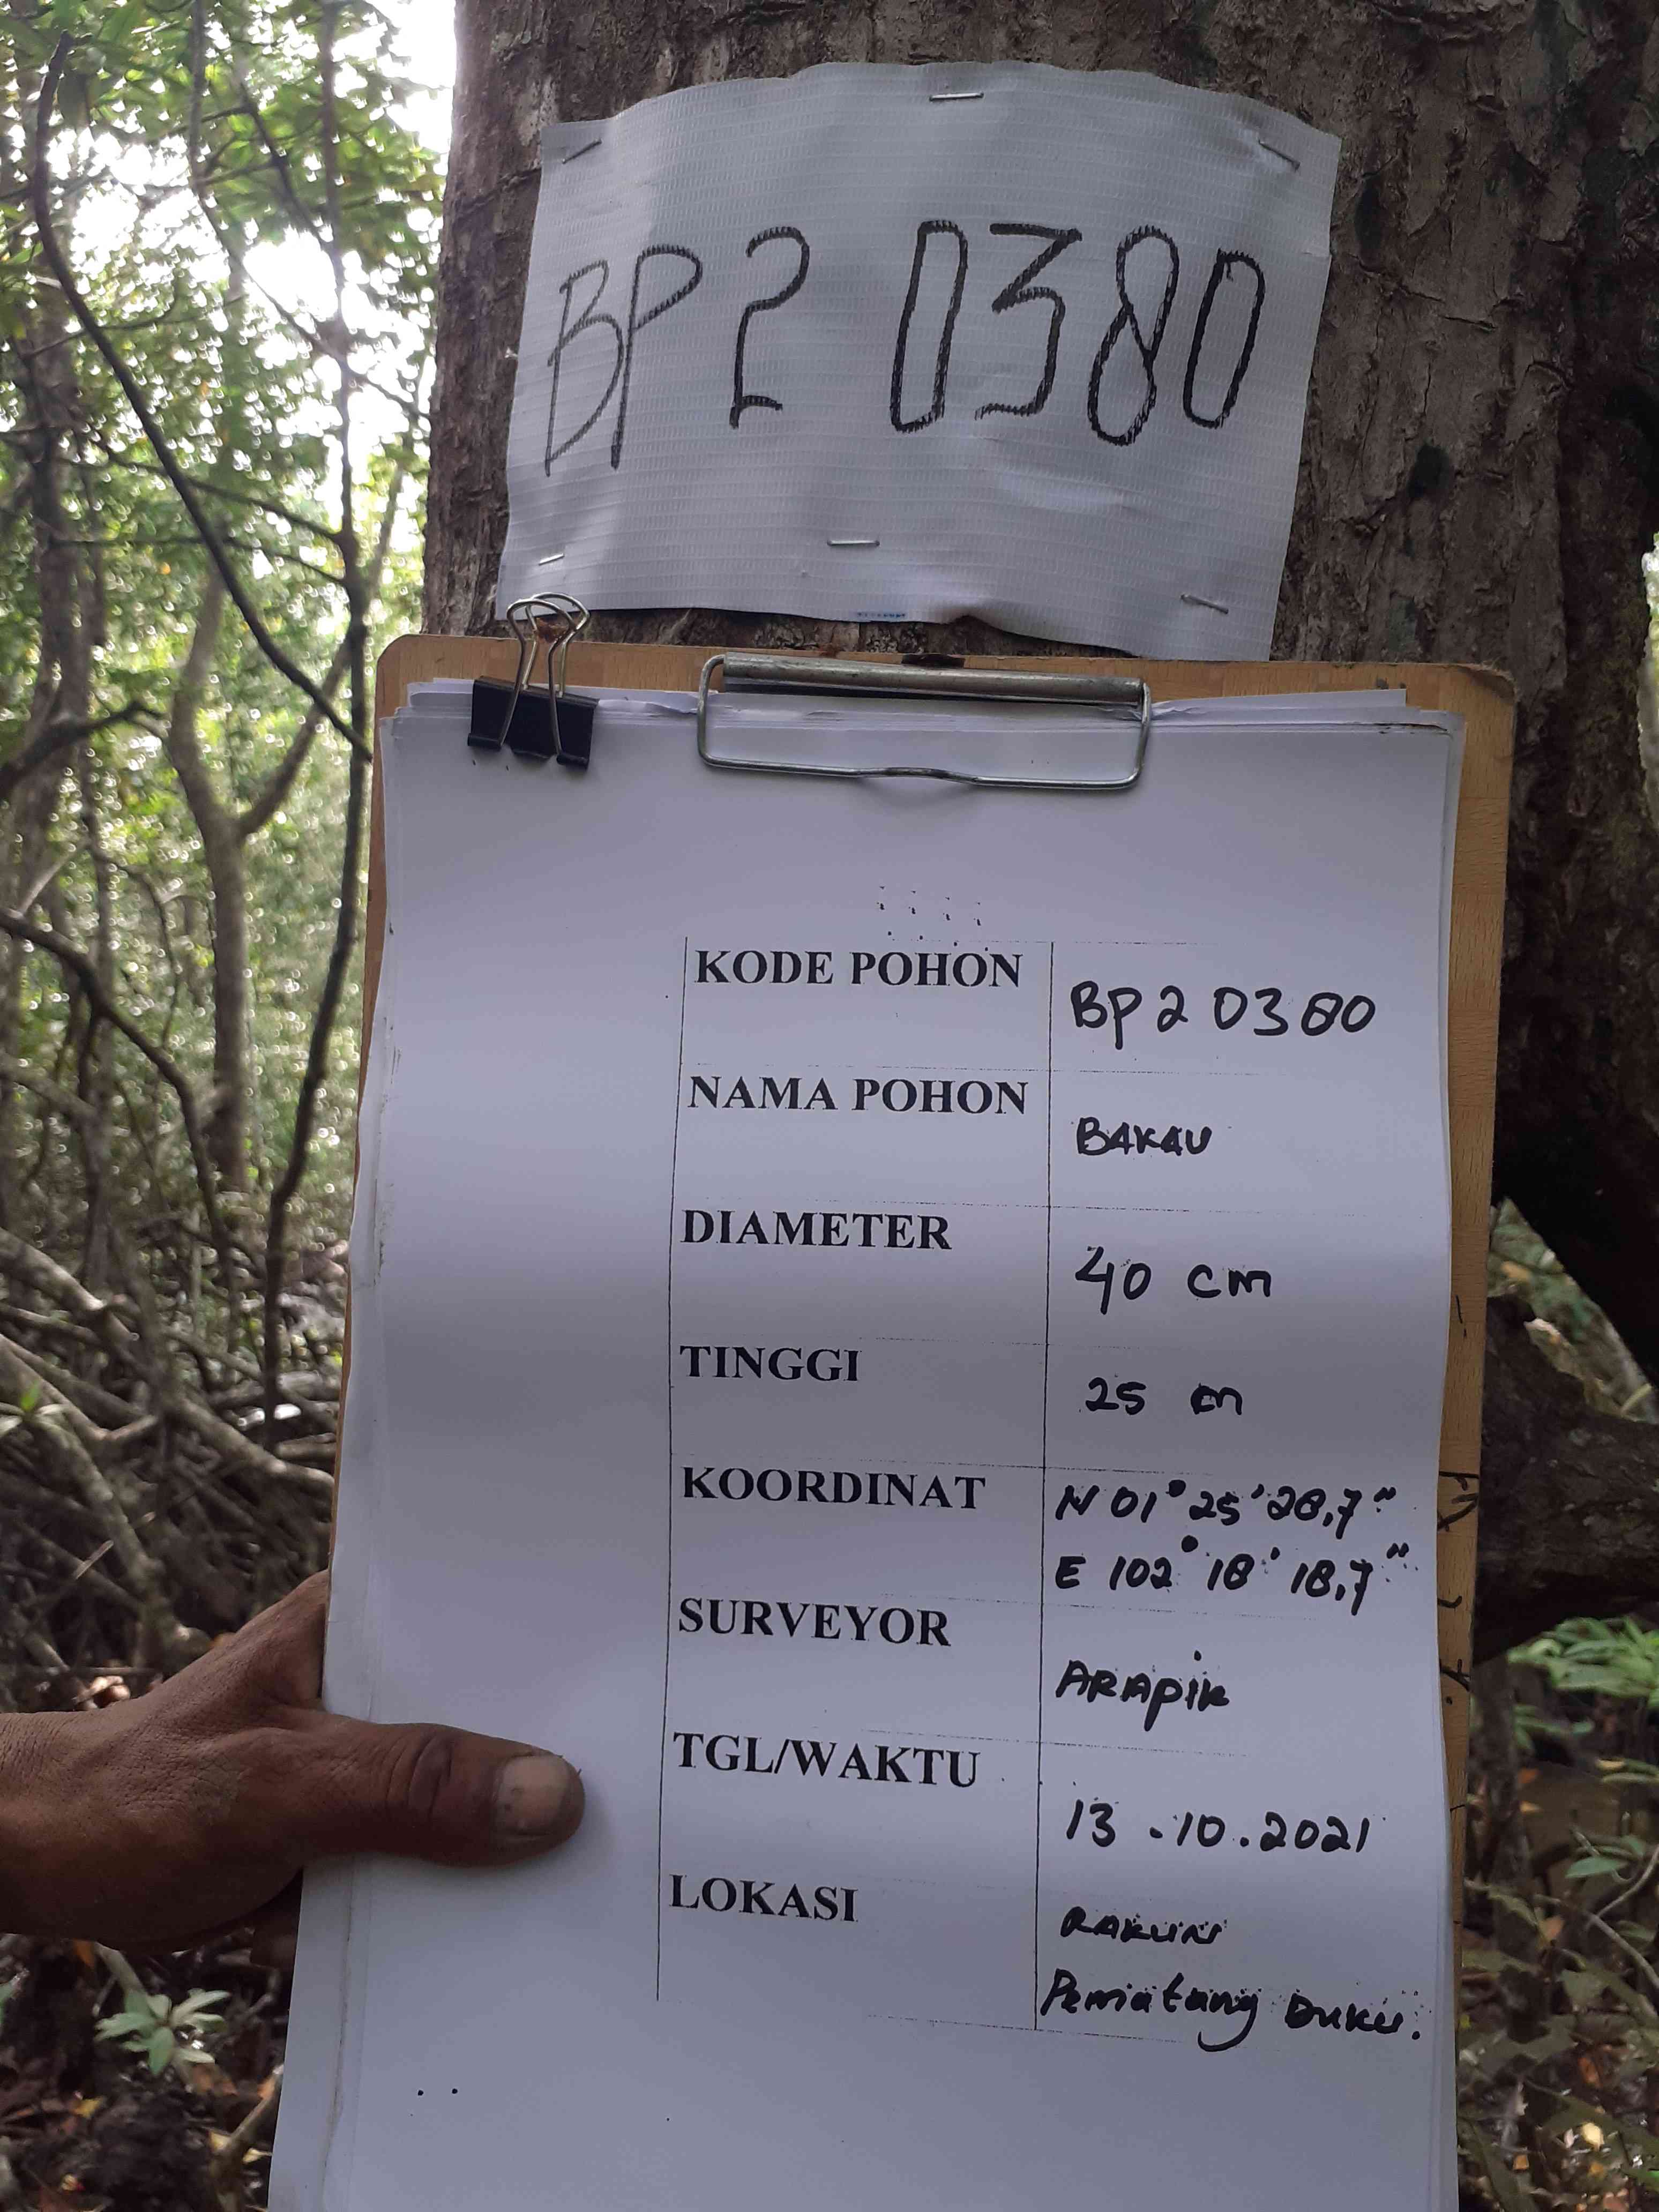 BP2 0380
KODE POHON
BP2 0380
NAMA POHON
BAKAU
DIAMETER
40 cm
TINGGI
25 m
KOORDINAT
N 01° 25' 28,7"
E 102° 18' 18,7"
SURVEYOR
ARApik
TGL/WAKTU
13 .10.2021
LOKASI
RAKUN
Pematang Duku.